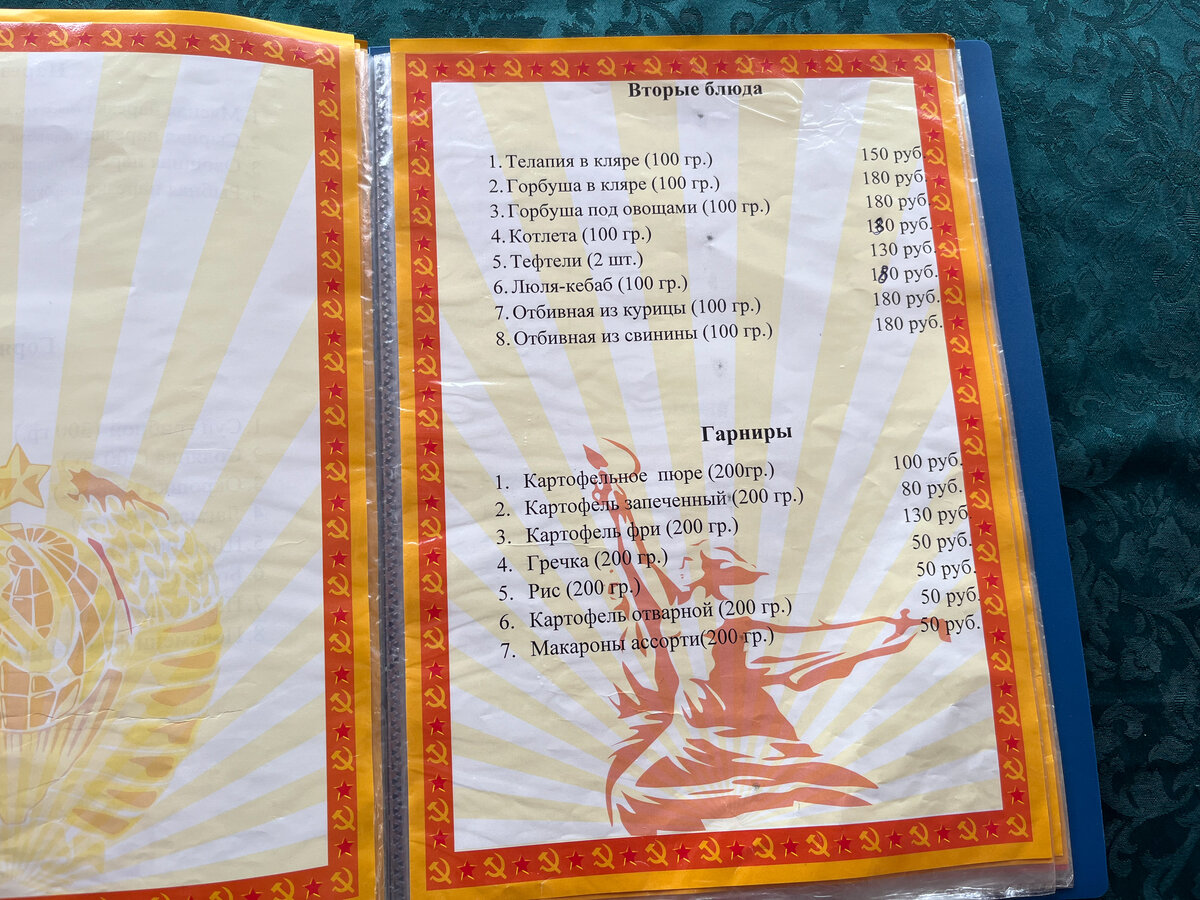 Вторые блюда
1. Телапия в кляре (100 гр.) 150 руб.
2. Горбуша в кляре (100 гр.) 180 руб.
3. Горбуша под овощами (100 гр.) 180 руб.
4. Котлета (100 гр.) 130 руб.
5. Тефтели (2 шт.) 130 руб.
6. Люля-кебаб (100 гр.) 180 руб.
7. Отбивная из курицы (100 гр.) 180 руб.
8. Отбивная из свинины (100 гр.) 180 руб.
Гарниры
1. Картофельное пюре (200гр.) 100 руб.
2. Картофель запеченный (200 гр.) 80 руб.
3. Картофель фри (200 гр.) 130 руб.
4. Гречка (200 гр.) 50 руб.
5. Рис (200 гр.) 50 руб.
6. Картофель отварной (200 гр.) 50 руб.
7. Макароны ассорти(200 гр.) 50 руб.